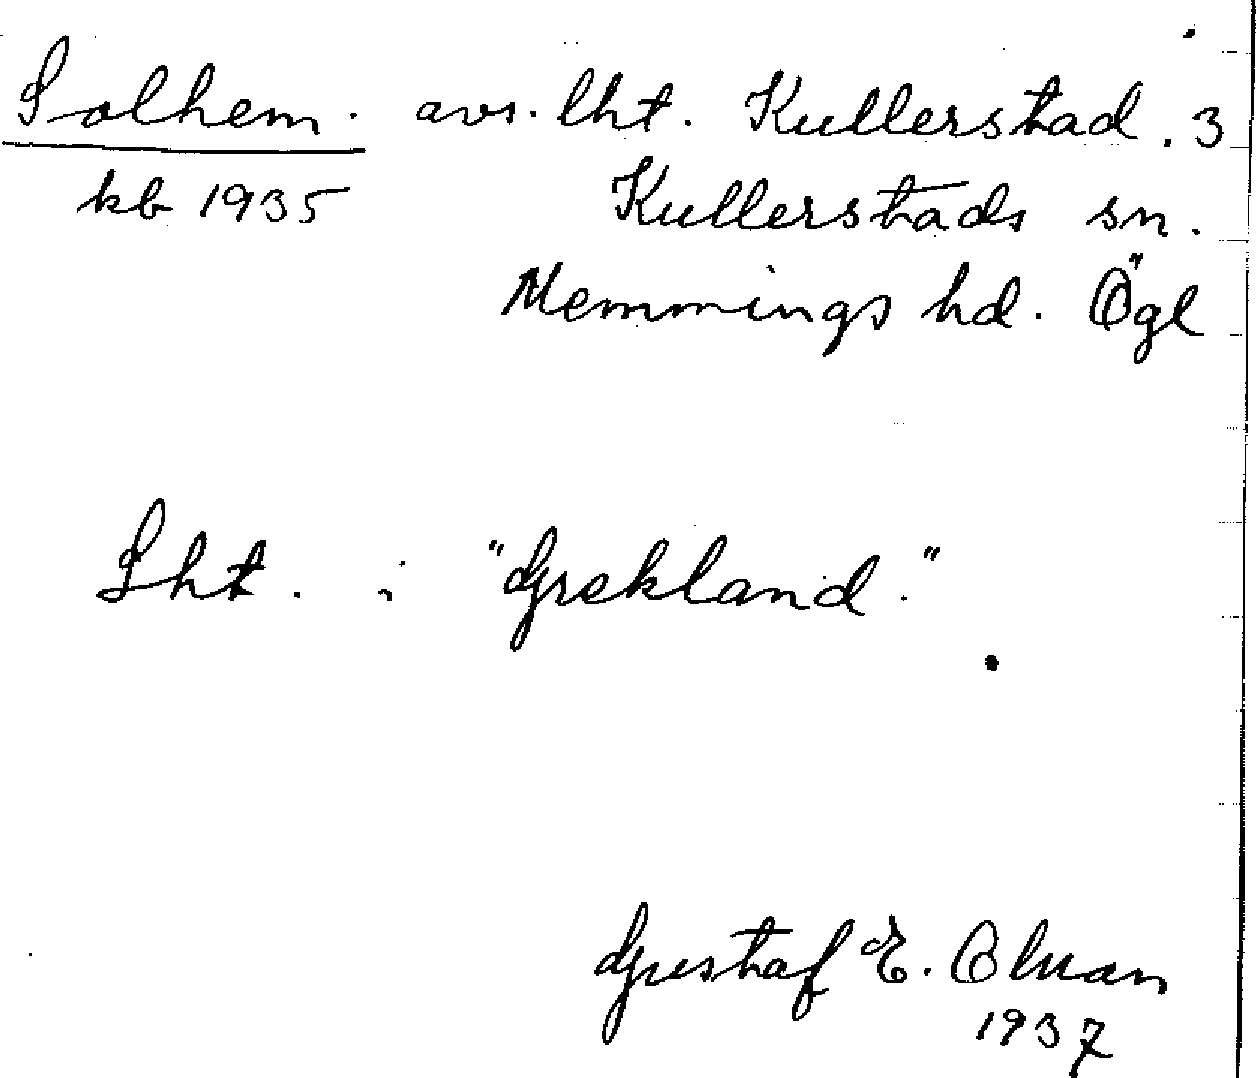 Solhem. avs. lht. Kullerstad. 3
kb 1935 Kullerstads sn.
Memmings hd. Ögl
Lht. i "Grekland."
Gustaf E. Olman
1937